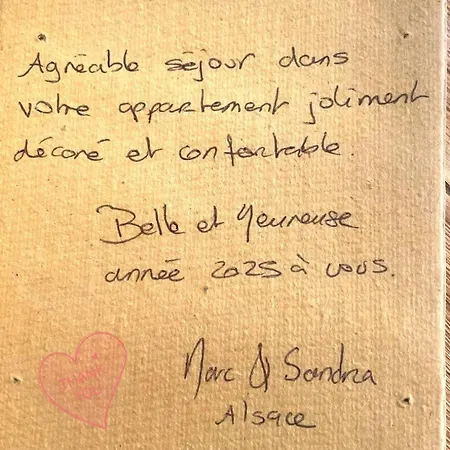 Agréable séjour dans
votre appartement joliment
décoré et confortable.
Belle et Heureuse
année 2025 à vous.
Marc & Sandra
Alsace
THANK
YOU